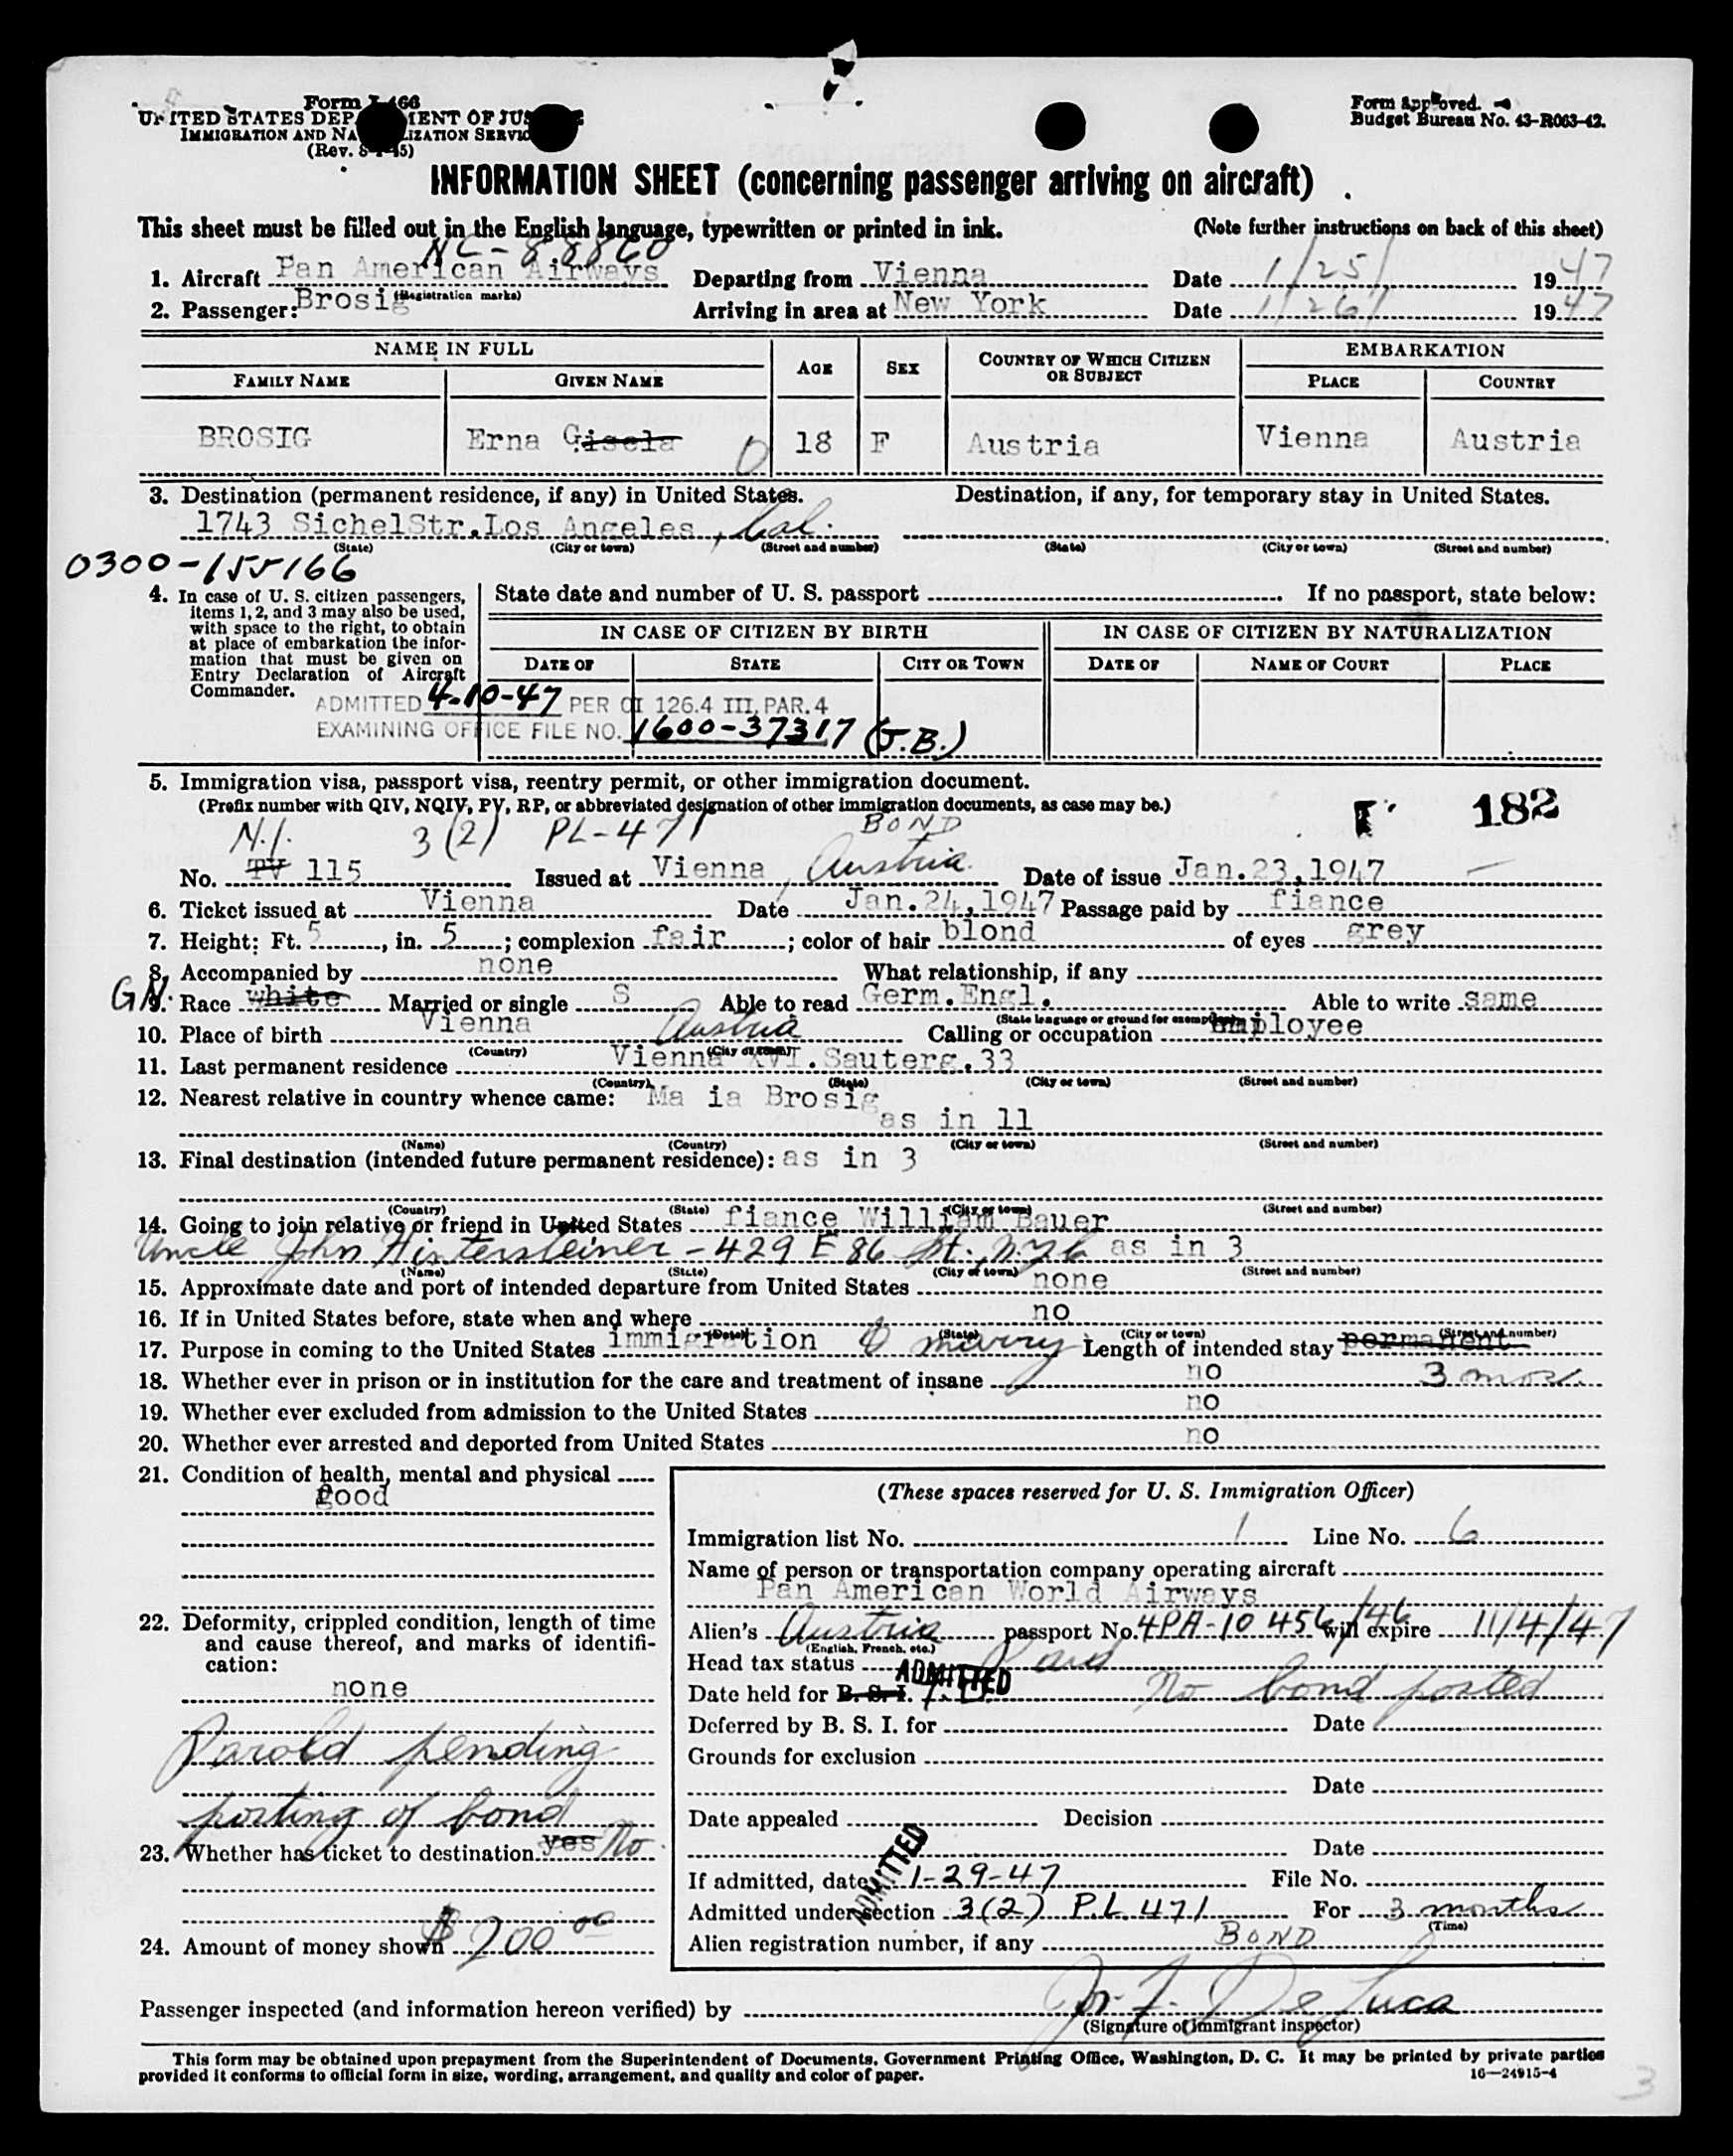 Form I-466
UNITED STATES DEPARTMENT OF JUSTICE
IMMIGRATION AND NATURALIZATION SERVICE
(Rev. 8-1-45)
Form approved.
Budget Bureau No. 43-R063-42.
INFORMATION SHEET (concerning passenger arriving on aircraft)
This sheet must be filled out in the English language, typewritten or printed in ink. (Note further instructions on back of this sheet)
NC-88860
1. Aircraft Pan American Airways Departing from Vienna Date 1/25/ 1947
(Registration marks)
2. Passenger: Brosig Arriving in area at New York Date 1/26/ 1947
NAME IN FULL AGE SEX COUNTRY OF WHICH CITIZEN OR SUBJECT EMBARKATION
FAMILY NAME GIVEN NAME PLACE COUNTRY
BROSIG Erna Gisela 18 F Austria Vienna Austria
3. Destination (permanent residence, if any) in United States. Destination, if any, for temporary stay in United States.
1743 SichelStr.Los Angeles, Cal.
(State) (City or town) (Street and number) (State) (City or town) (Street and number)
0300-155166
4. In case of U. S. citizen passengers, items 1, 2, and 3 may also be used, with space to the right, to obtain at place of embarkation the information that must be given on Entry Declaration of Aircraft Commander.
State date and number of U. S. passport If no passport, state below:
IN CASE OF CITIZEN BY BIRTH IN CASE OF CITIZEN BY NATURALIZATION
DATE OF STATE CITY OR TOWN DATE OF NAME OF COURT PLACE
ADMITTED 4-10-47 PER OI 126.4 III, PAR. 4
EXAMINING OFFICE FILE NO. 1600-37317 (J.B.)
5. Immigration visa, passport visa, reentry permit, or other immigration document.
(Prefix number with QIV, NQIV, PV, RP, or abbreviated designation of other immigration documents, as case may be.)
182
N.I. 3(2) PL-471 BOND
No. TV 115 Issued at Vienna, Austria Date of issue Jan.23,1947
6. Ticket issued at Vienna Date Jan.24,1947 Passage paid by fiance
7. Height: Ft. 5, in. 5; complexion fair; color of hair blond of eyes grey
8. Accompanied by none What relationship, if any
GN.
9. Race white Married or single S Able to read Germ.Engl. Able to write same
(State language or ground for exemption)
10. Place of birth Vienna Austria Calling or occupation employee
(Country) (City or town)
11. Last permanent residence Vienna XVI.Sauterg.33
(Country) (State) (City or town) (Street and number)
12. Nearest relative in country whence came: Ma ia Brosig
as in 11
(Name) (Country) (City or town) (Street and number)
13. Final destination (intended future permanent residence): as in 3
(Country) (State) (City or town) (Street and number)
14. Going to join relative or friend in United States fiance William Bauer
Uncle John Hintersteiner - 429 E 86 St., N.Y.C as in 3
(Name) (State) (City or town) (Street and number)
15. Approximate date and port of intended departure from United States none
16. If in United States before, state when and where no
(Date) (State) (City or town) (Street and number)
17. Purpose in coming to the United States immigration & marry Length of intended stay permanent
18. Whether ever in prison or in institution for the care and treatment of insane no 3 mos.
19. Whether ever excluded from admission to the United States no
20. Whether ever arrested and deported from United States no
21. Condition of health, mental and physical
good
22. Deformity, crippled condition, length of time and cause thereof, and marks of identification:
none
Parold pending
posting of bond
23. Whether has ticket to destination yes No
24. Amount of money shown $200 00
(These spaces reserved for U. S. Immigration Officer)
Immigration list No. 1 Line No. 6
Name of person or transportation company operating aircraft
Pan American World Airways
Alien's Austria passport No. 4PA-10 456/46 will expire 11/4/47
(English, French, etc.)
Head tax status Paid
ADMITTED
Date held for B. S. I. No bond posted
Deferred by B. S. I. for Date
Grounds for exclusion
Date
Date appealed Decision
Date
ADMITTED
If admitted, date 1-29-47 File No.
Admitted under section 3(2) P.L. 471 For 3 months
(Time)
Alien registration number, if any BOND
Passenger inspected (and information hereon verified) by De Luca
(Signature of immigrant inspector)
This form may be obtained upon prepayment from the Superintendent of Documents, Government Printing Office, Washington, D. C. It may be printed by private parties
provided it conforms to official form in size, wording, arrangement, and quality and color of paper. 16—24915-4
3